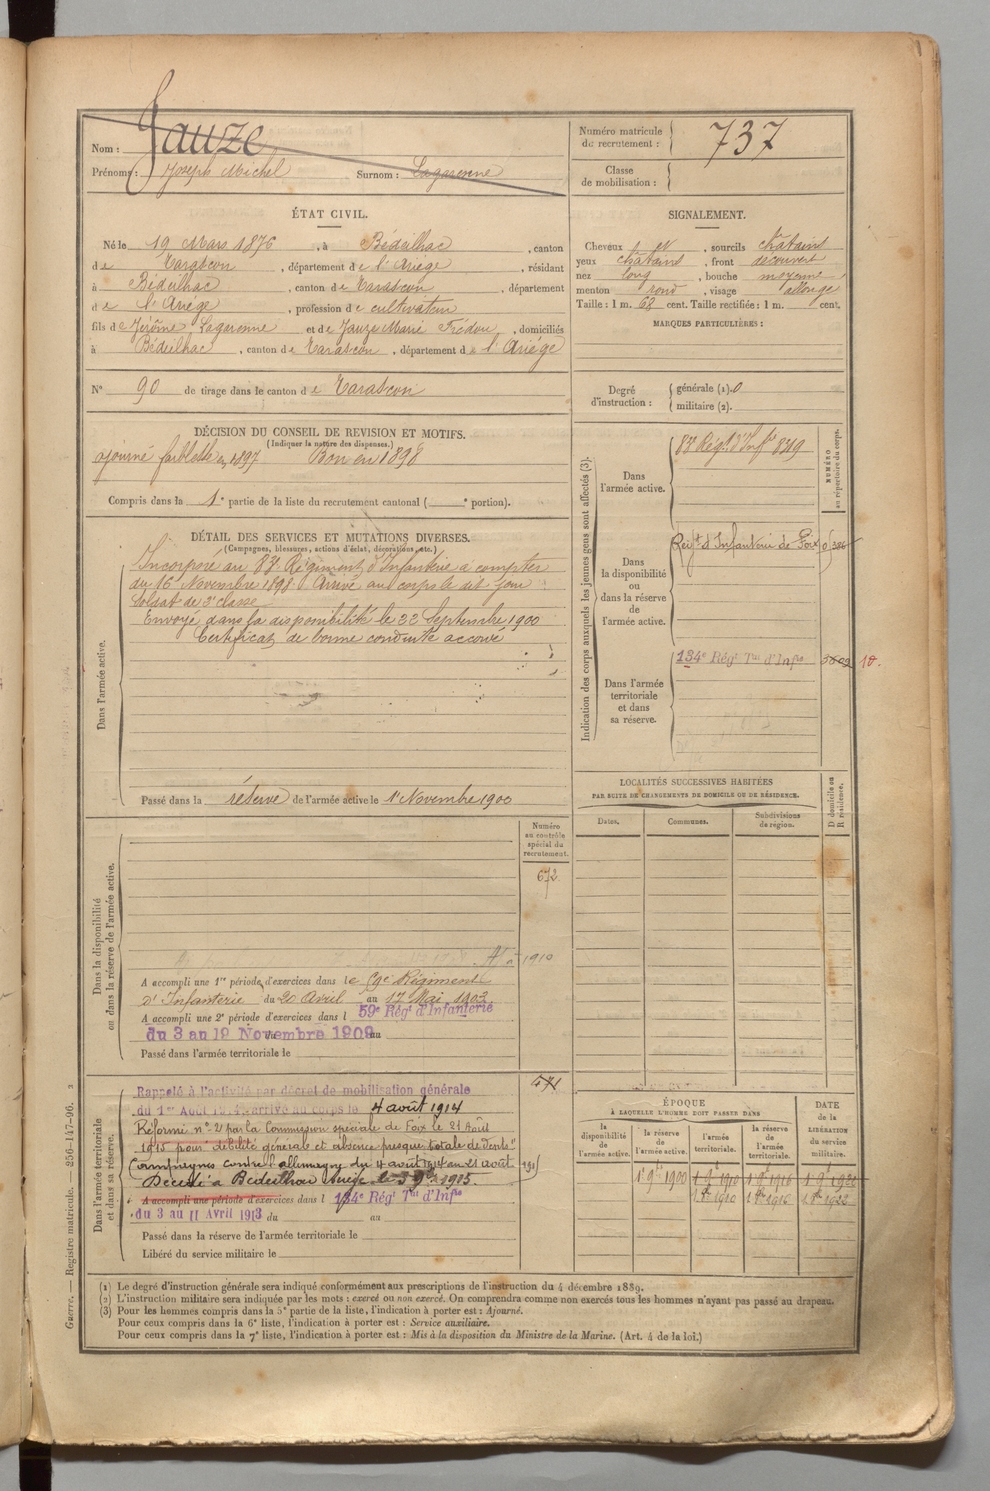 Nom : Jauze
Prénoms : Joseph Michel Surnom : Lagarenne
Numéro matricule du recrutement : 737
Classe de mobilisation :
ÉTAT CIVIL.
Né le 19 Mars 1876, à Bédeilhac, canton
de Tarascon, département de l'Ariège, résidant
à Bédeilhac, canton de Tarascon, département
de l'Ariège, profession de cultivateur
fils de Jérôme Lagarenne et de Jauze Marie, domiciliés
à Bédeilhac, canton de Tarascon, département de l'Ariège
N° 90 de tirage dans le canton de Tarascon
SIGNALEMENT.
Cheveux, sourcils châtains
yeux châtains, front découvert
nez long, bouche moyenne,
menton rond, visage allongé
Taille : 1 m. 68 cent. Taille rectifiée : 1 m. cent.
MARQUES PARTICULIÈRES :
Degré d'instruction : générale (1). 0
militaire (2).
DÉCISION DU CONSEIL DE REVISION ET MOTIFS.
(Indiquer la nature des dispenses.)
ajourné faiblesse en 1897 Bon en 1898
Compris dans la 1e partie de la liste du recrutement cantonal ( e portion).
DÉTAIL DES SERVICES ET MUTATIONS DIVERSES.
(Campagnes, blessures, actions d'éclat, décorations, etc.)
Dans l'armée active.
Incorporé au 83e Régiment d'Infanterie à compter
du 16 Novembre 1898 Arrivé au corps le dit jour
Soldat de 2e classe
Envoyé dans la disponibilité le 22 Septembre 1900
Certificat de bonne conduite accordé
Passé dans la réserve de l'armée active le 1er Novembre 1900
Indication des corps auxquels les jeunes gens sont affectés (3).
NUMÉRO au répertoire du corps.
Dans l'armée active.
83e Régt d'Infie 8319
Dans la disponibilité ou dans la réserve de l'armée active.
Régt d'Infanterie de Foix
Dans l'armée territoriale et dans sa réserve.
134e Régt Tal d'Infie
LOCALITÉS SUCCESSIVES HABITÉES
PAR SUITE DE CHANGEMENTS DE DOMICILE OU DE RÉSIDENCE.
Dates. Communes. Subdivisions de région. D domicile ou R résidence.
Dans la disponibilité ou dans la réserve de l'armée active.
Numéro au contrôle spécial du recrutement.
672
1910
A accompli une 1re période d'exercices dans le 59e Régiment
d'Infanterie du 20 Avril au 17 Mai 1903
A accompli une 2e période d'exercices dans l 59e Régt d'Infanterie
du 3 au 19 Novembre 1909 au
Passé dans l'armée territoriale le
Dans l'armée territoriale et dans sa réserve.
571
Rappelé à l'activité par décret de mobilisation générale
du 1er Août 1914, arrivé au corps le 4 août 1914
Réformé n° 2 par la Commission spéciale de Foix le 21 Août
1915 pour "débilité générale et absence presque totale de dents"
Campagnes contre l'allemagne du 4 août 1914 au 21 août 1915
Décédé à Bédeilhac Ariège le 3 9bre 1915.
A accompli une période d'exercices dans l 134e Régt Tal d'Infie
du 3 au 11 Avril 1913 du au
Passé dans la réserve de l'armée territoriale le
Libéré du service militaire le
ÉPOQUE
À LAQUELLE L'HOMME DOIT PASSER DANS
la disponibilité de l'armée active. la réserve de l'armée active. l'armée territoriale. la réserve de l'armée territoriale. DATE de la LIBÉRATION du service militaire.
1er 9bre 1900 1er 9bre 1910 1er 9bre 1916
(1) Le degré d'instruction générale sera indiqué conformément aux prescriptions de l'instruction du 4 décembre 1889.
(2) L'instruction militaire sera indiquée par les mots : exercé ou non exercé. On comprendra comme non exercés tous les hommes n'ayant pas passé au drapeau.
(3) Pour les hommes compris dans la 5e partie de la liste, l'indication à porter est : Ajourné.
Pour ceux compris dans la 6e liste, l'indication à porter est : Service auxiliaire.
Pour ceux compris dans la 7e liste, l'indication à porter est : Mis à la disposition du Ministre de la Marine. (Art. 4 de la loi.)
Guerre. — Registre matricule. — 256-147-96.